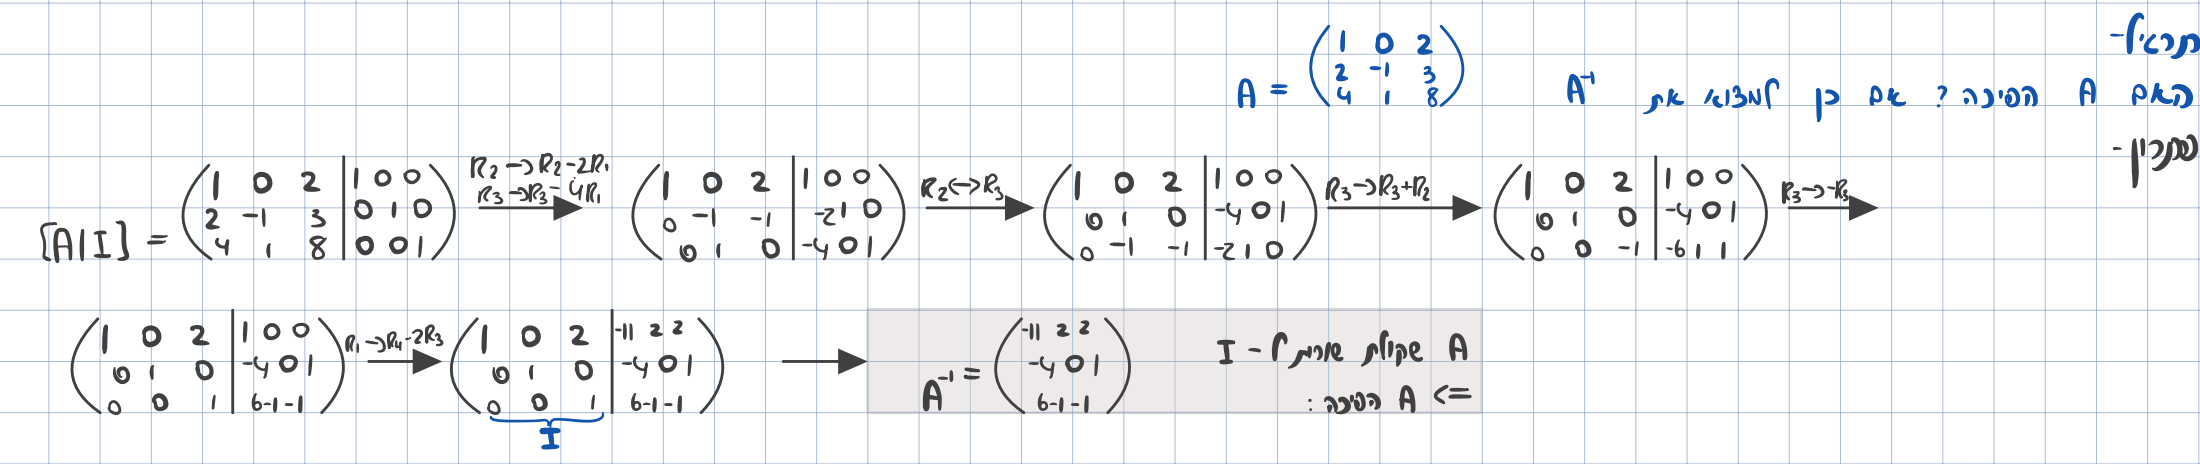 תרגיל-
האם A הפיכה? אם כן למצוא את A⁻¹ A = (1 0 2; 2 -1 3; 4 1 8)
פתרון-
[A|I] = (1 0 2 | 1 0 0; 2 -1 3 | 0 1 0; 4 1 8 | 0 0 1) R₂→R₂-2R₁ R₃→R₃-4R₁ (1 0 2 | 1 0 0; 0 -1 -1 | -2 1 0; 0 1 0 | -4 0 1) R₂<->R₃ (1 0 2 | 1 0 0; 0 1 0 | -4 0 1; 0 -1 -1 | -2 1 0) R₃→R₃+R₂ (1 0 2 | 1 0 0; 0 1 0 | -4 0 1; 0 0 -1 | -6 1 1) R₃→-R₃
(1 0 2 | 1 0 0; 0 1 0 | -4 0 1; 0 0 1 | 6 -1 -1) R₁→R₄-2R₃ (1 0 2 | -11 2 2; 0 1 0 | -4 0 1; 0 0 1 | 6 -1 -1)
I
A שקולת שורות ל-I
<= A הפיכה:
A⁻¹ = (-11 2 2; -4 0 1; 6 -1 -1)